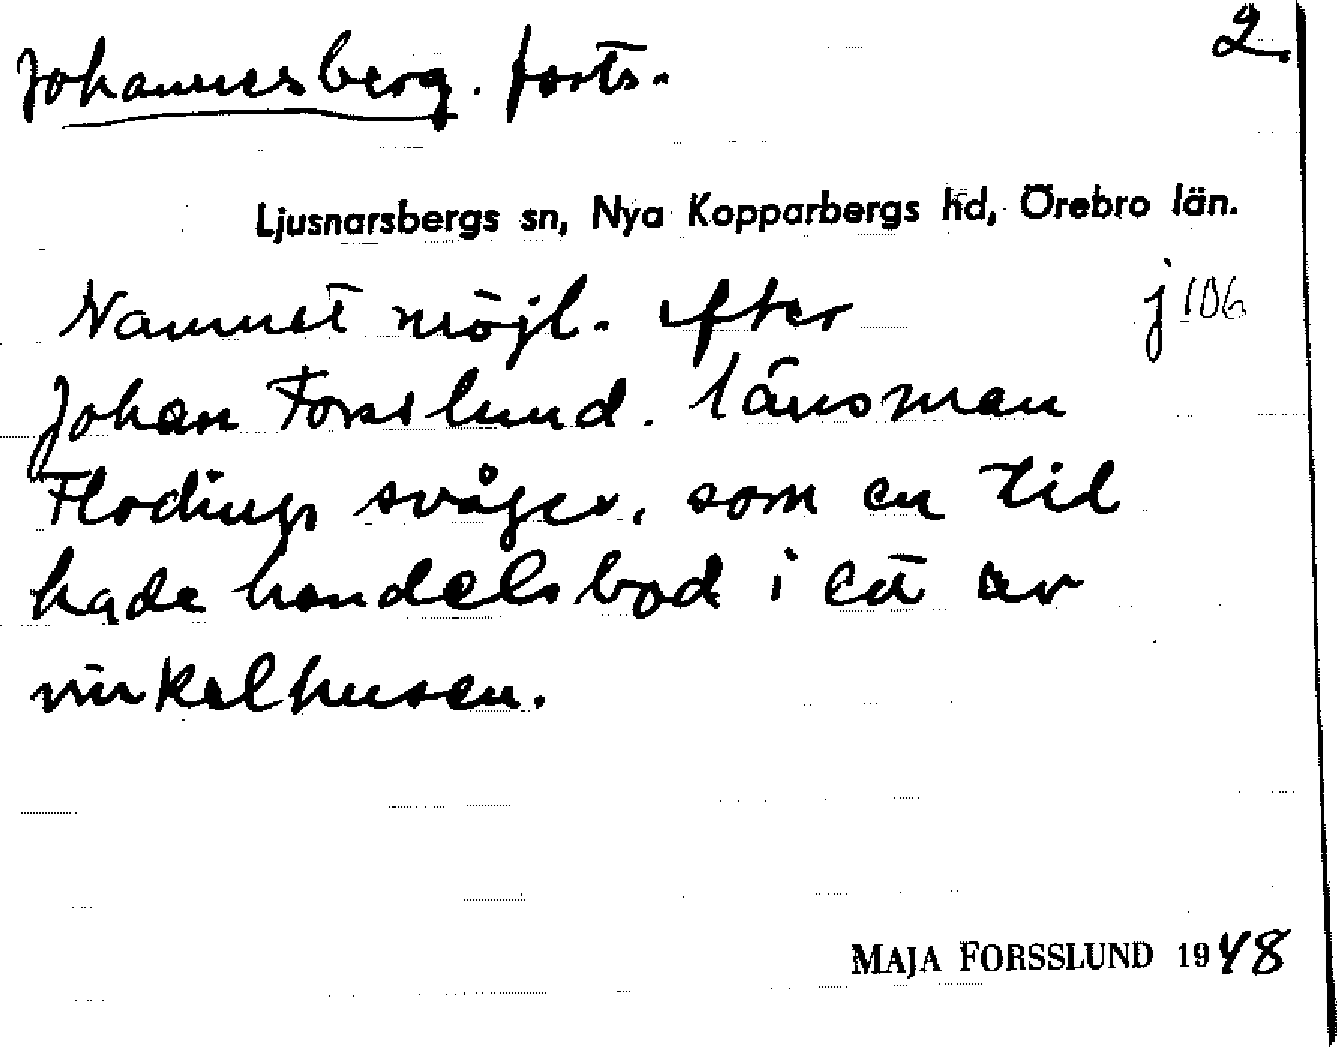 Johannesberg. forts. 2.
Ljusnarsbergs sn, Nya Kopparbergs hd, Örebro län.
Namnet möjl. efter j 106
Johan Forsslund. länsman
Flodings svåger, som en tid
hade handelsbod i ett av
vinkelhusen.
MAJA FORSSLUND 1948